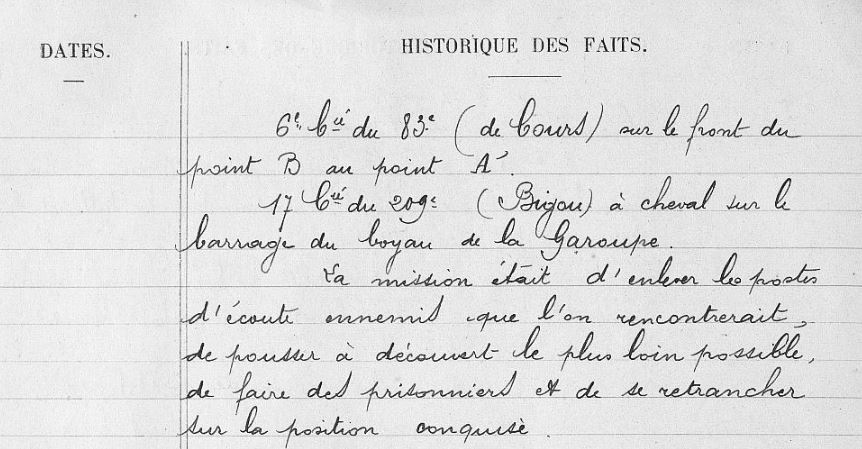 DATES.
HISTORIQUE DES FAITS.
6e Cie du 83e (de Cours) sur le front du
point B au point A'.
17 Cie du 209e (Bigou) à cheval sur le
barrage du boyau de la Garoupe.
La mission était d'enlever les postes
d'écoute ennemis que l'on rencontrerait,
de pousser à découvert le plus loin possible,
de faire des prisonniers et de se retrancher
sur la position conquise.